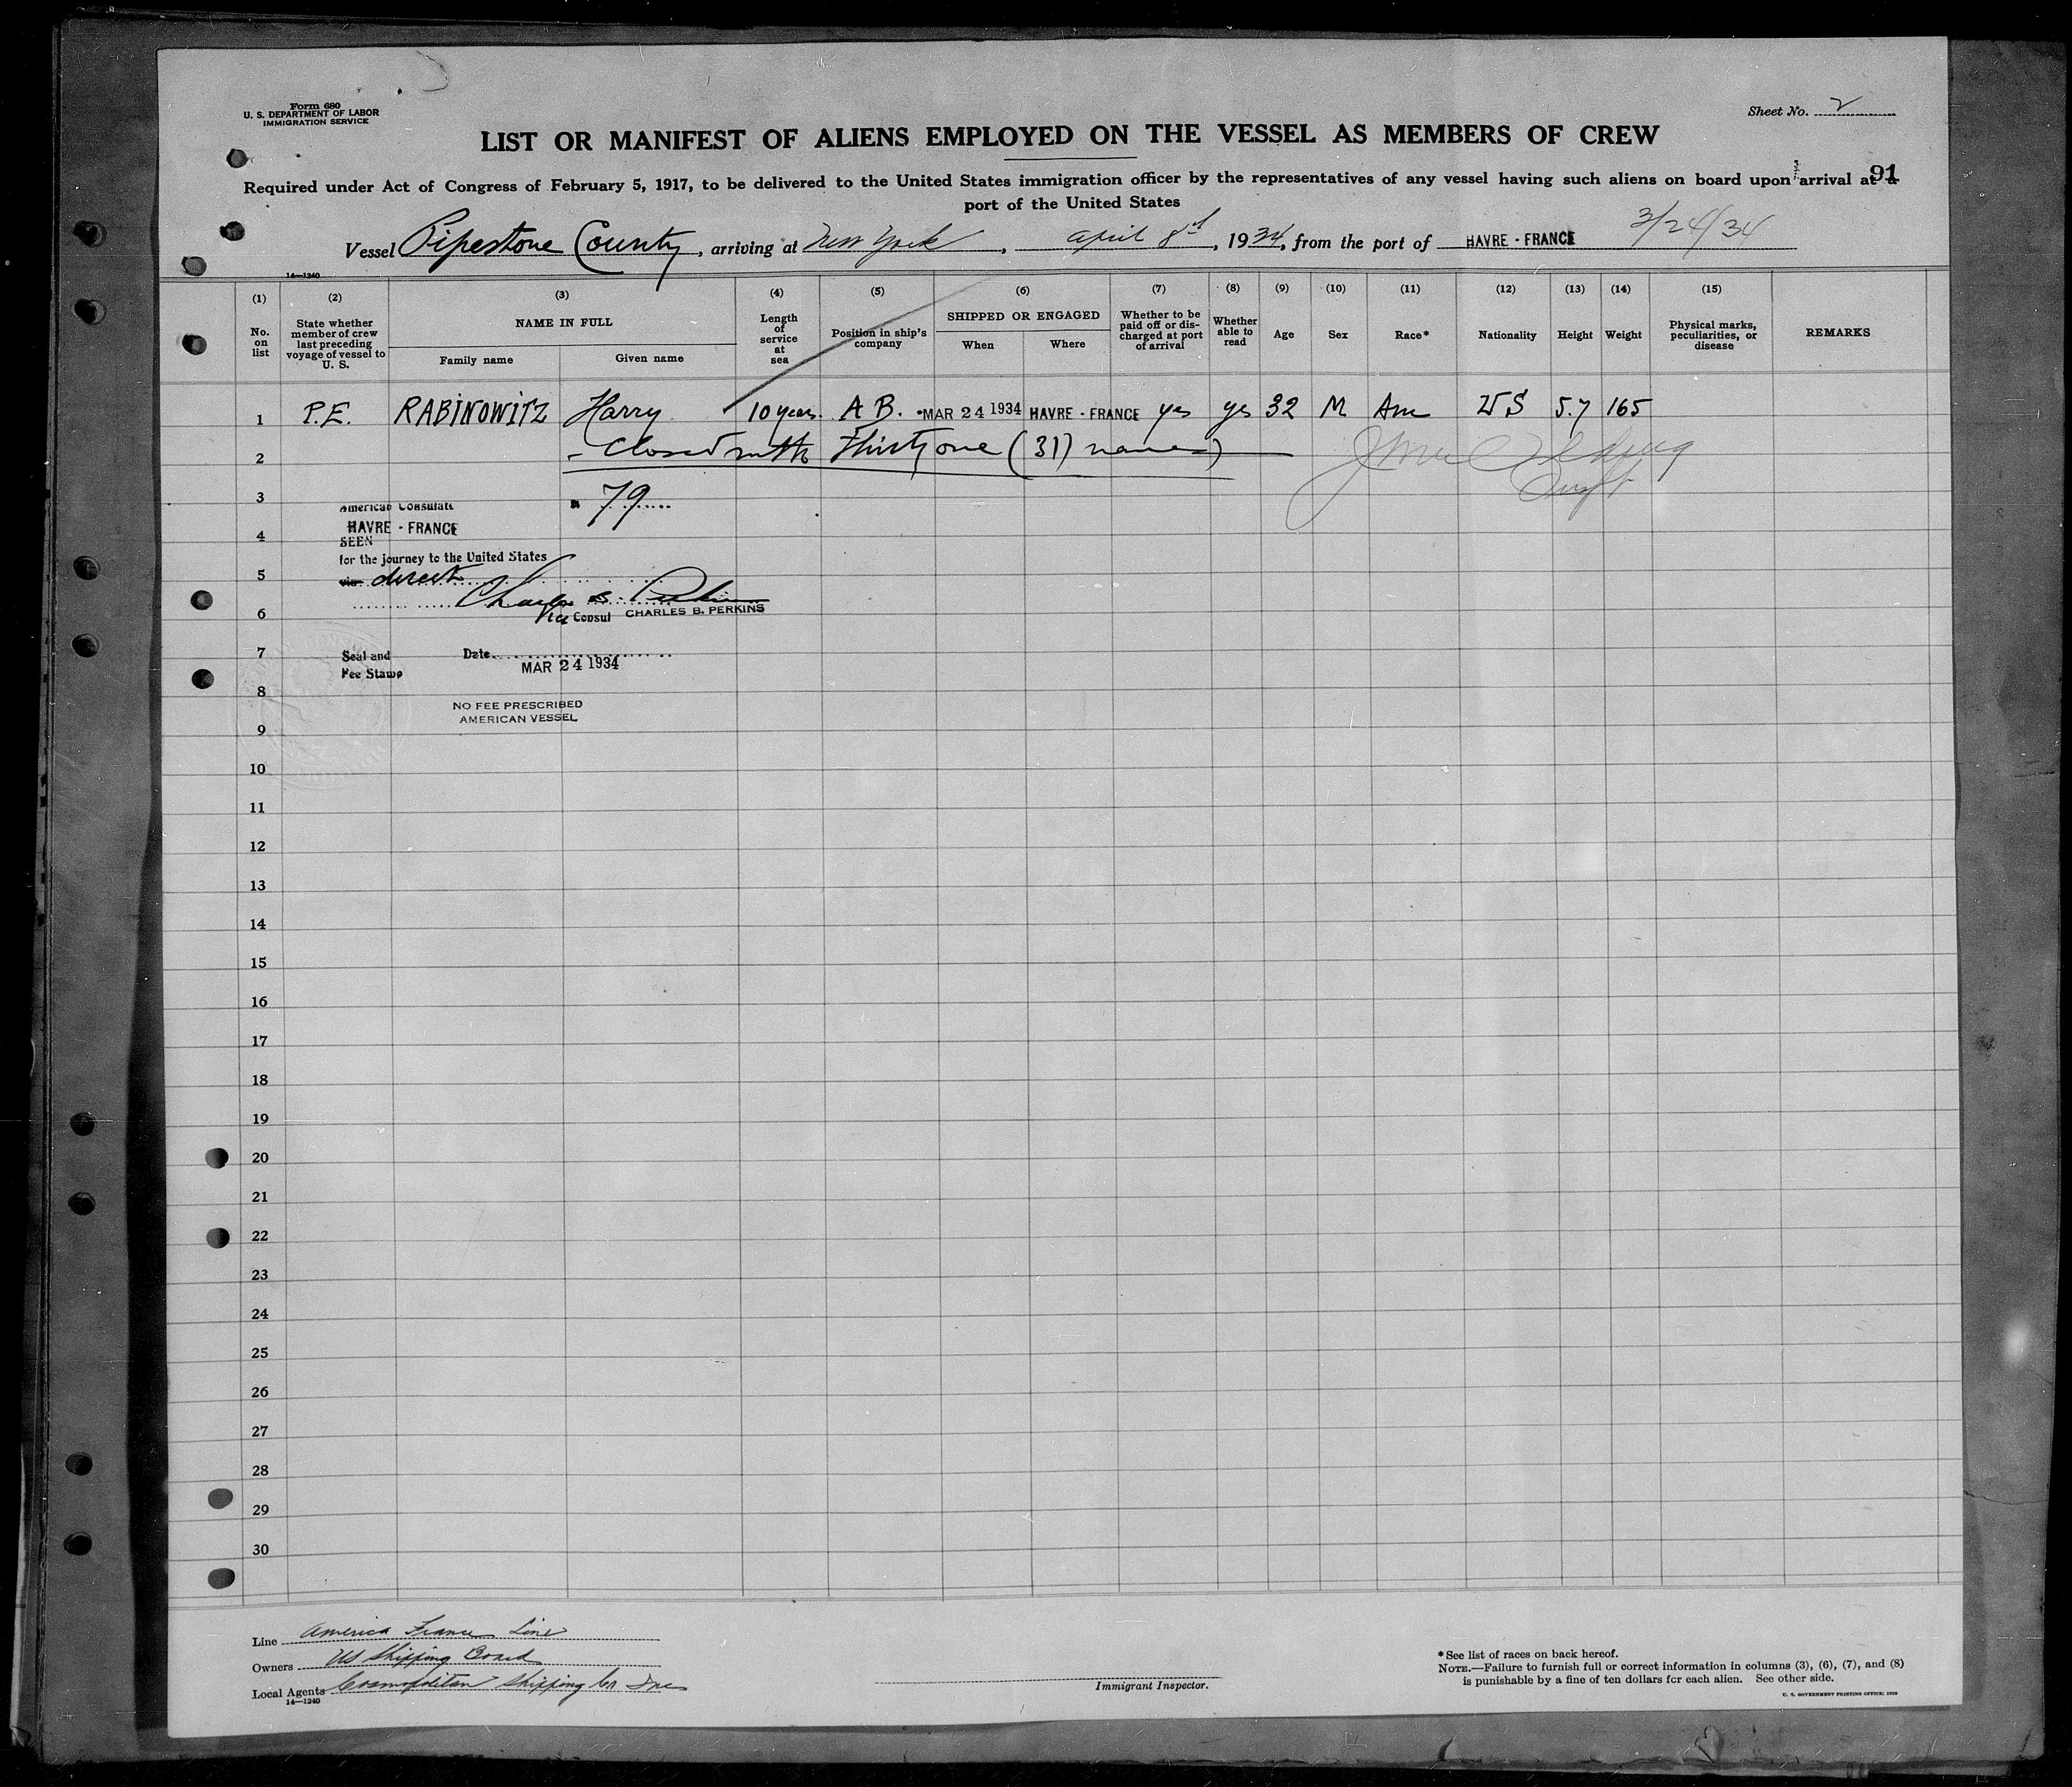 Form 680
U. S. DEPARTMENT OF LABOR
IMMIGRATION SERVICE
Sheet No. 2
LIST OR MANIFEST OF ALIENS EMPLOYED ON THE VESSEL AS MEMBERS OF CREW
91
Required under Act of Congress of February 5, 1917, to be delivered to the United States immigration officer by the representatives of any vessel having such aliens on board upon arrival at a
port of the United States
Vessel Pipestone County, arriving at New York, April 8, 1934, from the port of HAVRE - FRANCE 3/24/34
14—1240
(1) (2) (3) (4) (5) (6) (7) (8) (9) (10) (11) (12) (13) (14) (15)
No. on list
State whether member of crew last preceding voyage of vessel to U. S.
NAME IN FULL
Family name
Given name
Length of service at sea
Position in ship's company
SHIPPED OR ENGAGED
When
Where
Whether to be paid off or discharged at port of arrival
Whether able to read
Age
Sex
Race*
Nationality
Height
Weight
Physical marks, peculiarities, or disease
REMARKS
1 P.E. RABINOWITZ Harry 10 years. A B. MAR 24 1934 HAVRE - FRANCE yes yes 32 M Am US 5.7 165
2 - Closed with Thirty one (31) names)
3 79
American Consulate
HAVRE - FRANCE
4 SEEN
for the journey to the United States
5 via direct
Charles B. Perkins
6 Vice Consul CHARLES B. PERKINS
7 Seal and Date
Fee Stamp MAR 24 1934
8
NO FEE PRESCRIBED
AMERICAN VESSEL
9
10
11
12
13
14
15
16
17
18
19
20
21
22
23
24
25
26
27
28
29
30
Line America France Line
Owners US Shipping Board
Local Agents Cosmopolitan Shipping Co Inc
14—1240
Immigrant Inspector.
* See list of races on back hereof.
NOTE.—Failure to furnish full or correct information in columns (3), (6), (7), and (8)
is punishable by a fine of ten dollars for each alien. See other side.
U. S. GOVERNMENT PRINTING OFFICE: